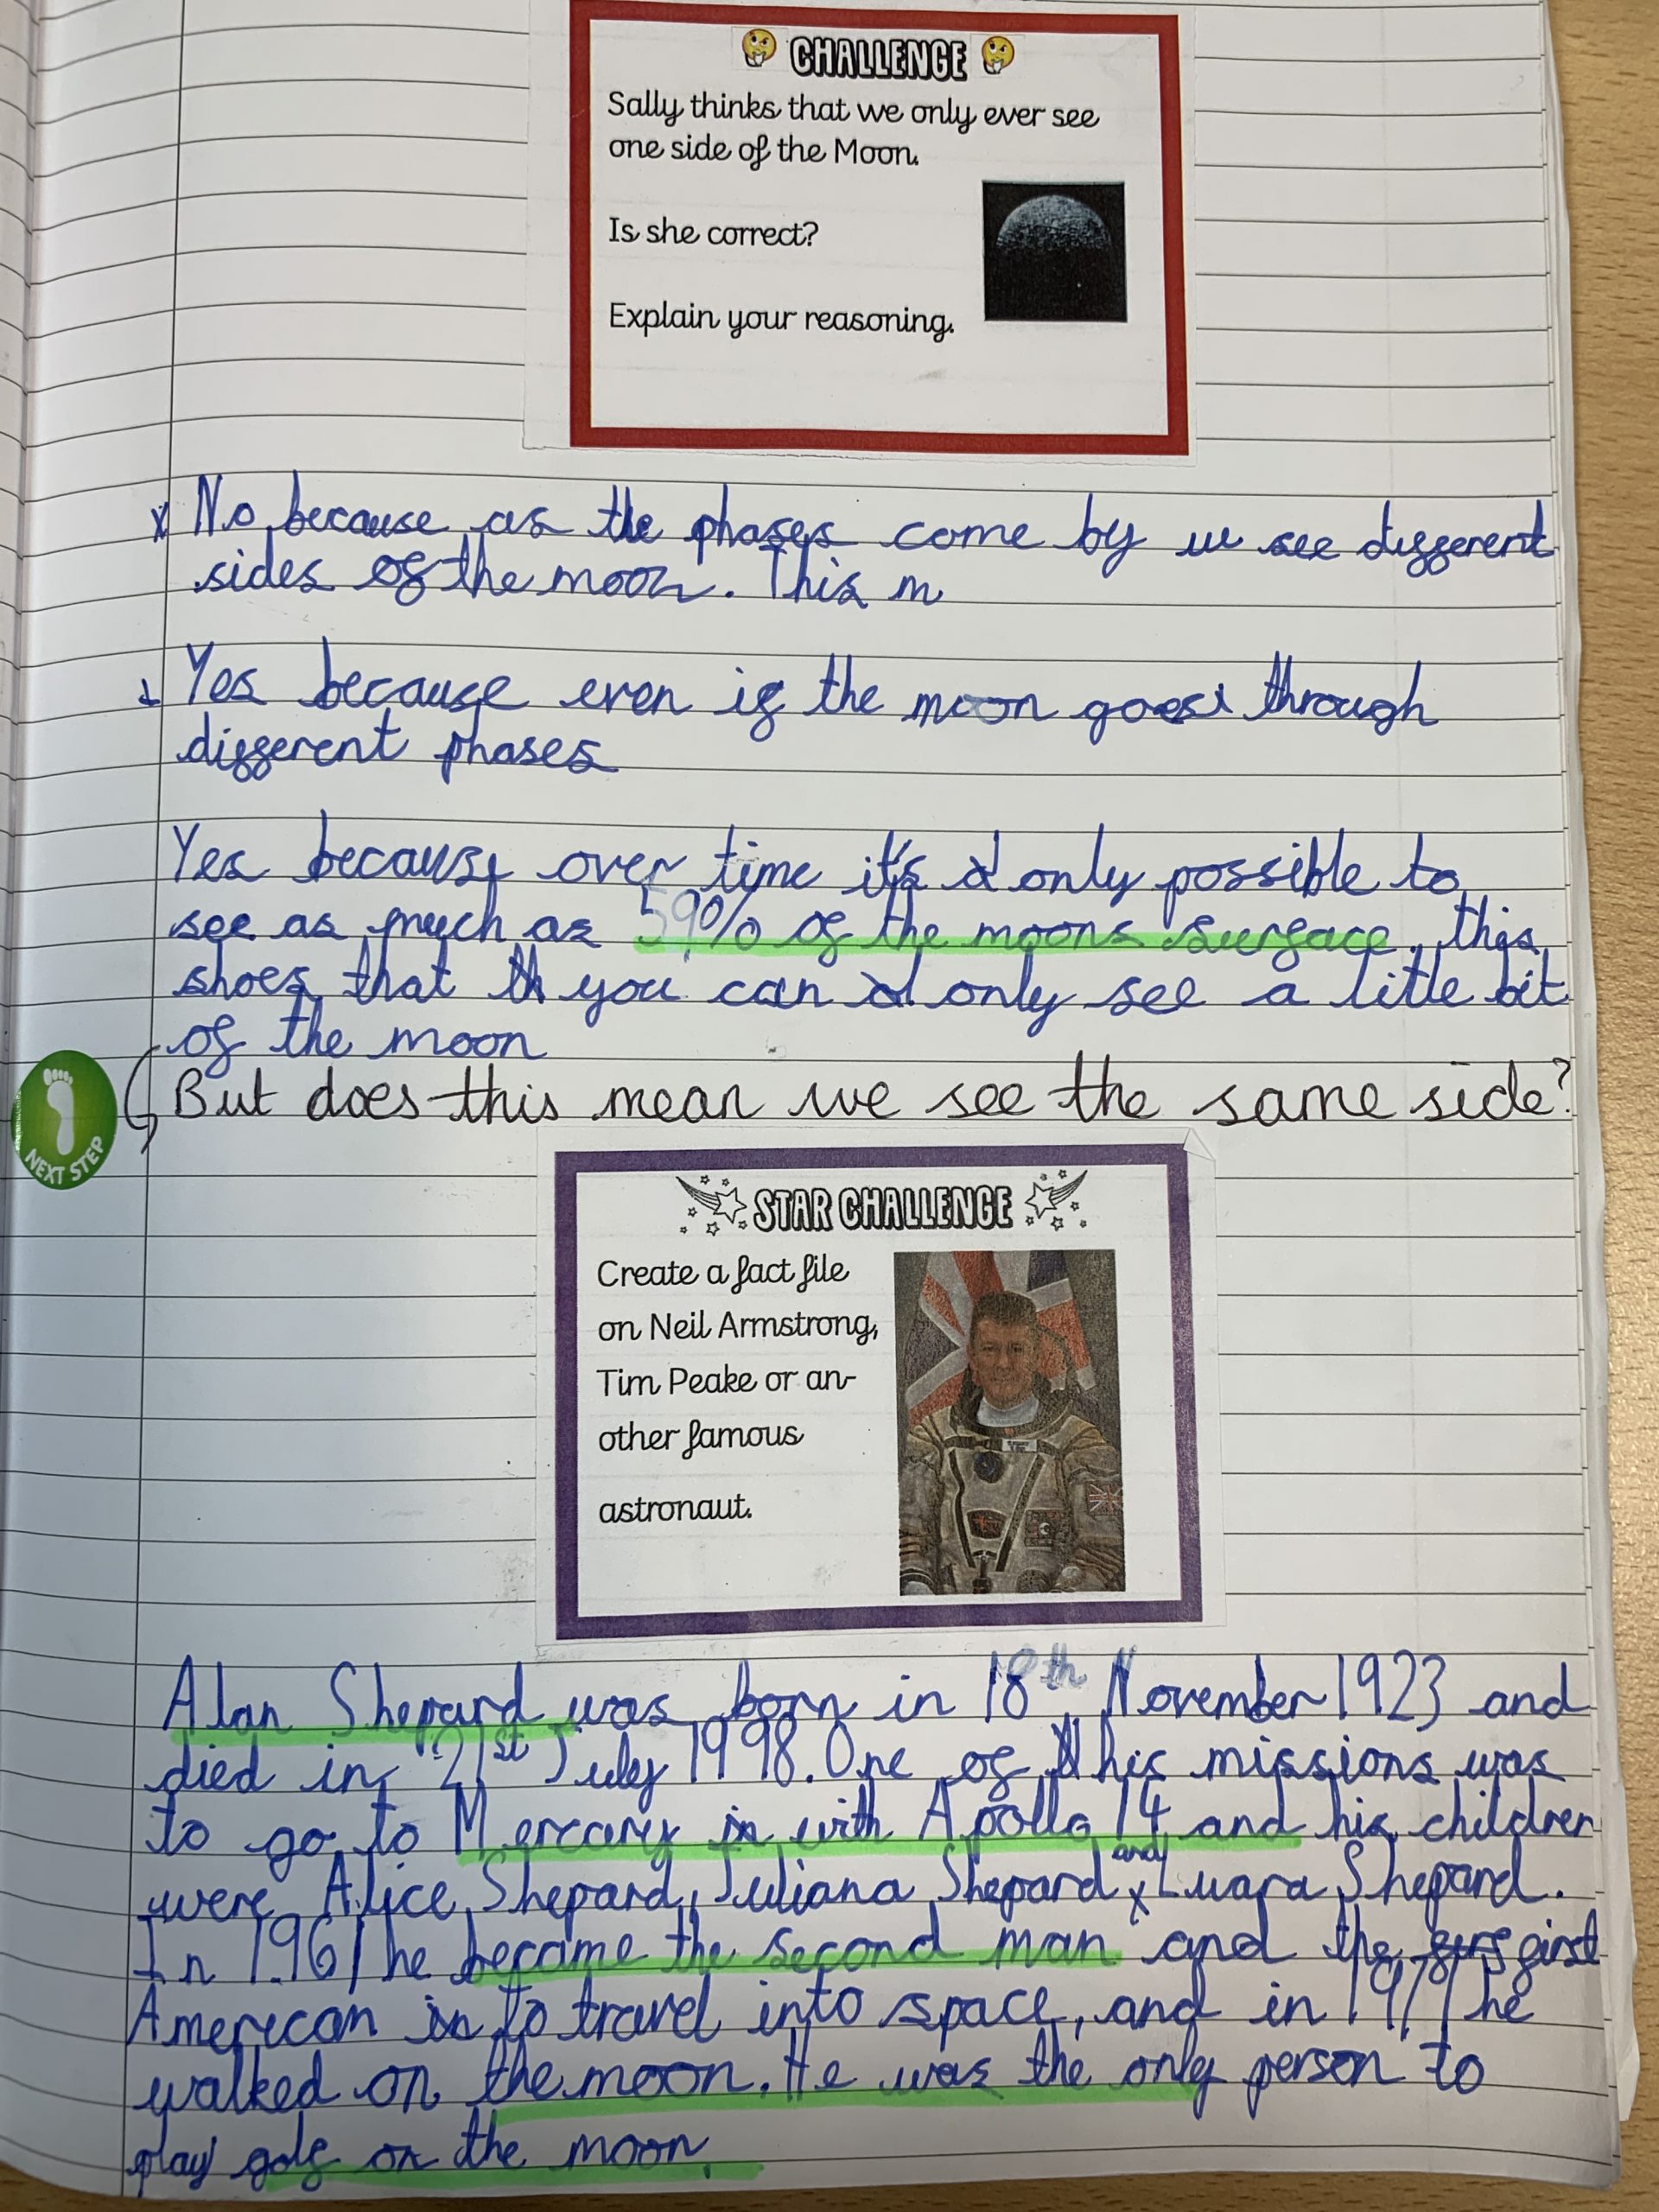 CHALLENGE
Sally thinks that we only ever see
one side of the Moon.
Is she correct?
Explain your reasoning.
No because as the phases come by we see different
sides of the moon. This m
Yes because even if the moon goes through
different phases
Yes because over time it's only possible to
see as much as 59% of the moons surface. this
shoes that you can only see a little bit
of the moon
NEXT STEP
But does this mean we see the same side?
STAR CHALLENGE
Create a fact file
on Neil Armstrong,
Tim Peake or an-
other famous
astronaut.
Alan Shepard was born in 18th November 1923 and
died in 21st July 1998. One of his missions was
to go to Mercary in with Apollo 14 and his children
were Alice Shepard, Juliana Shepard and Luara Shepard.
In 1961 he became the second man and the first
American to travel into space, and in 1971 he
walked on the moon. He was the only person to
play golf on the moon.